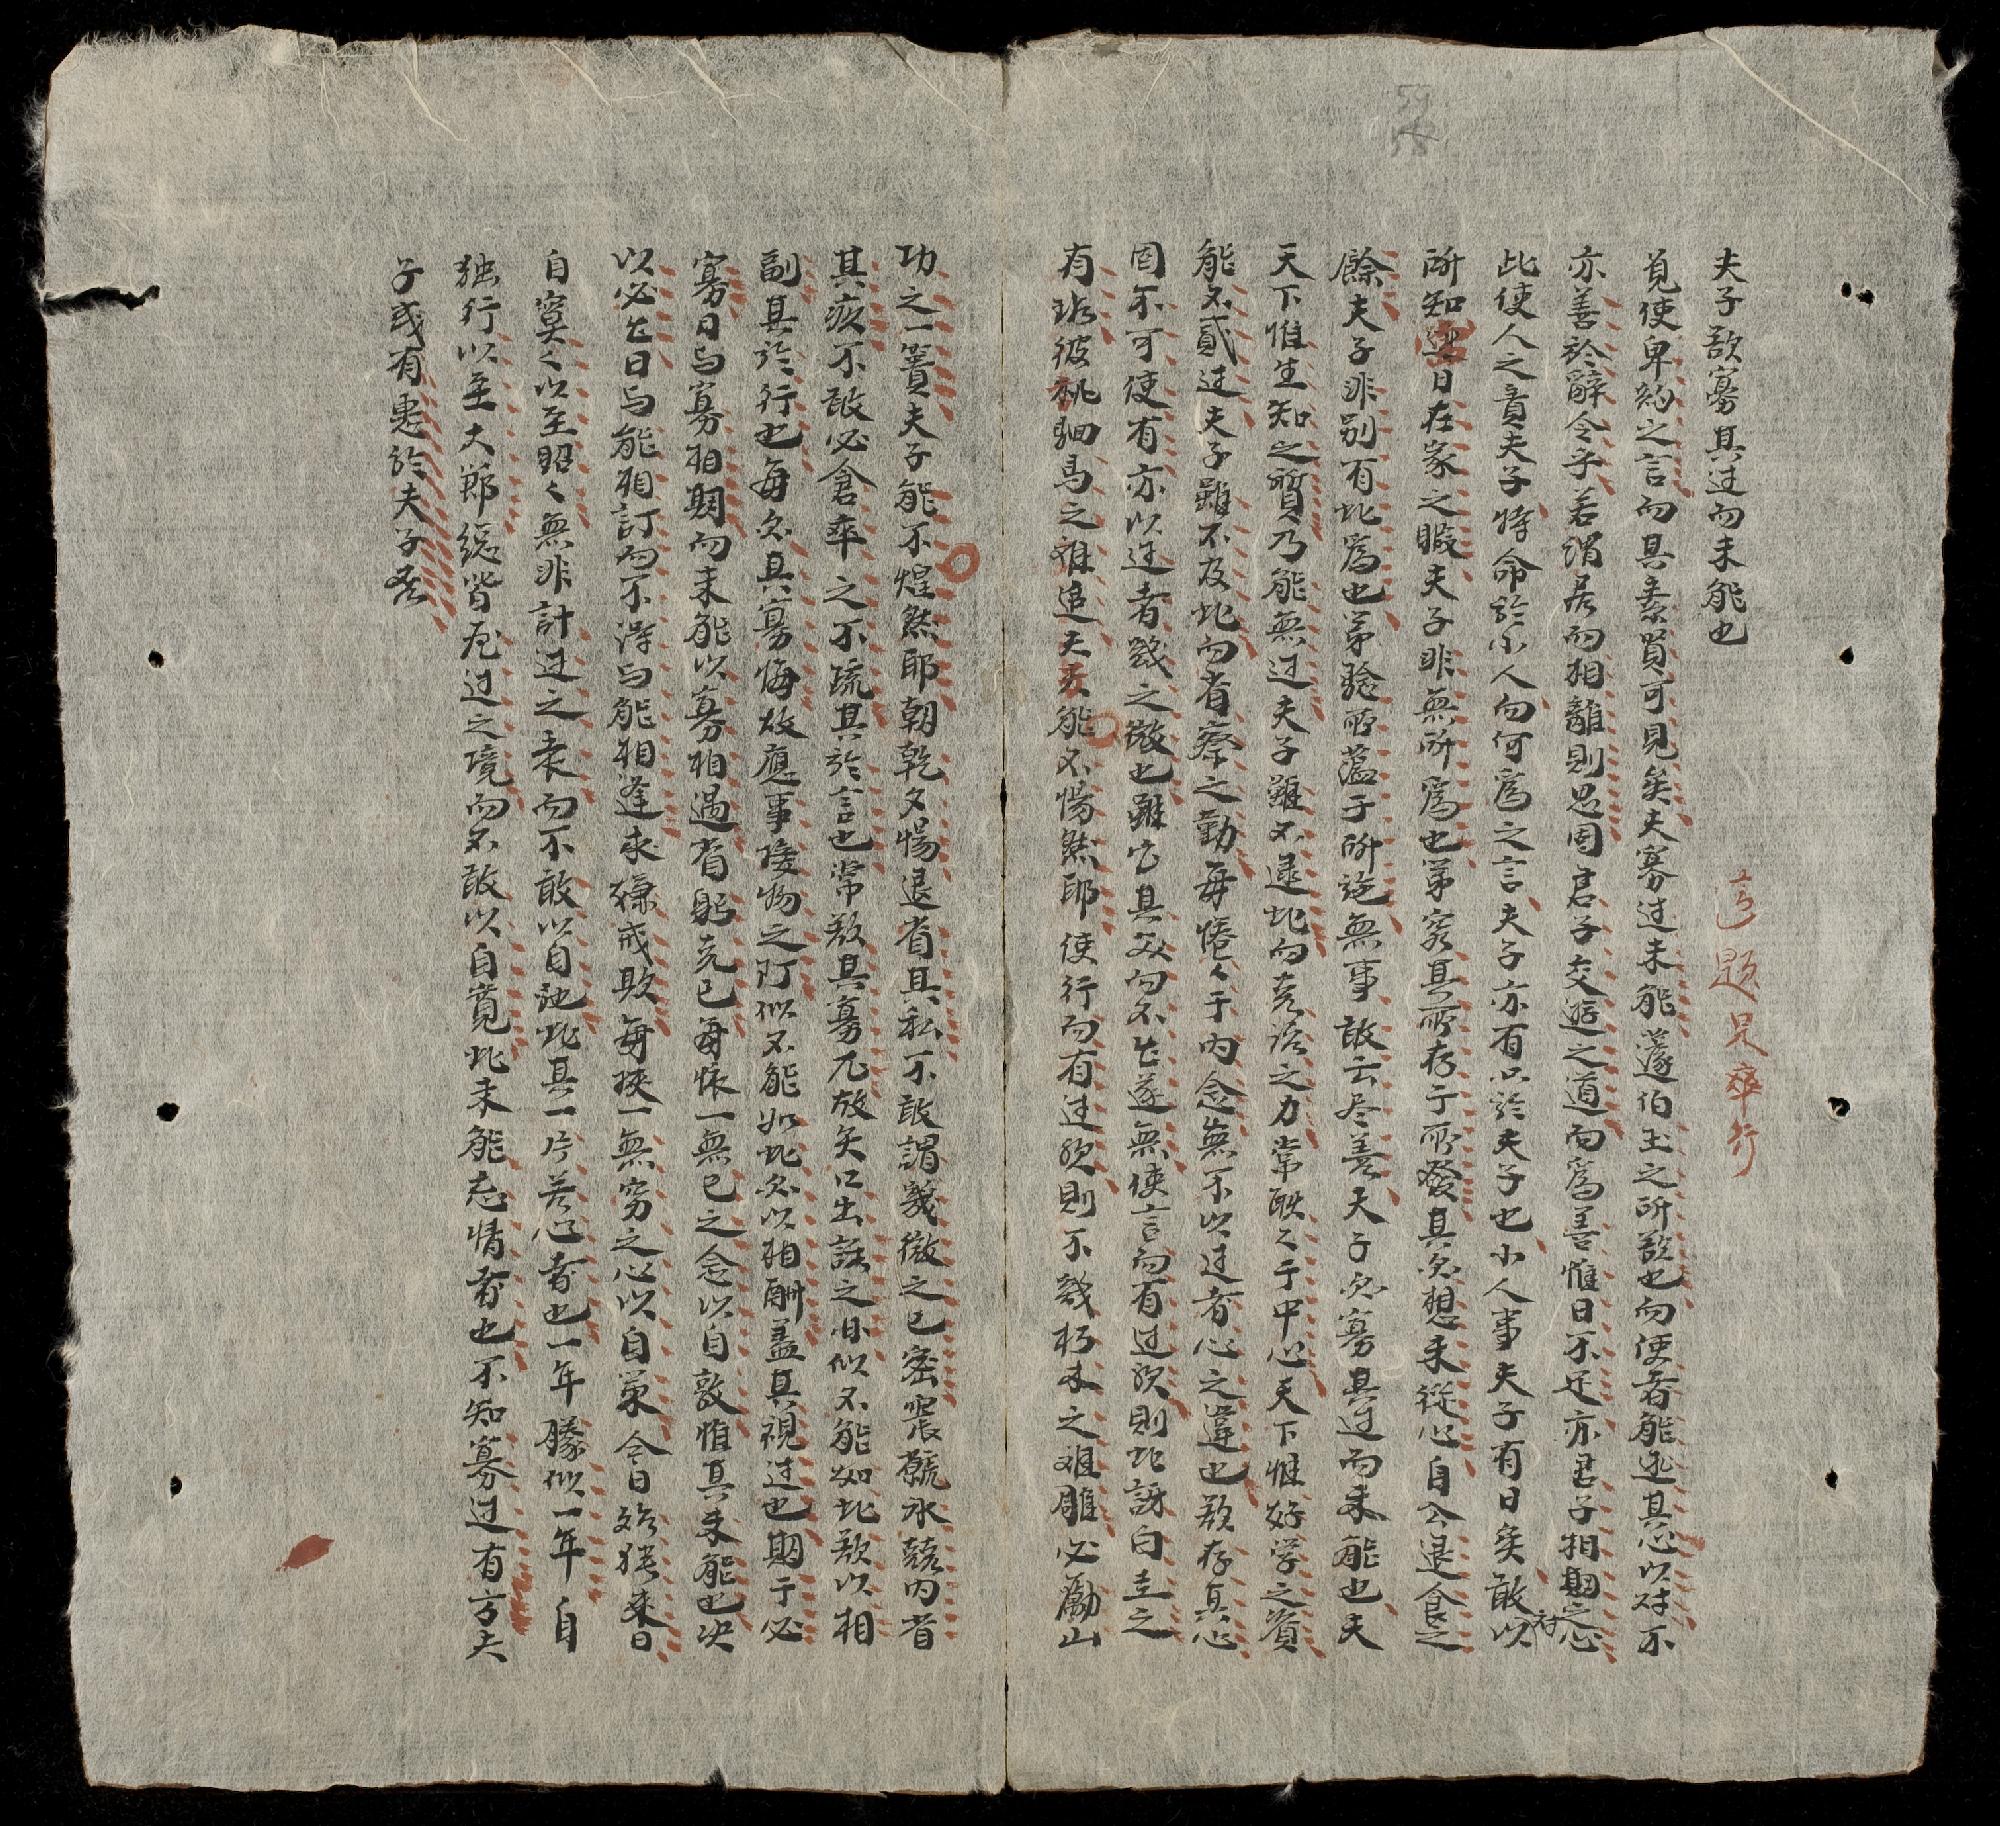 夫子欲寡其过而未能也
這題只率行
覓使卑約之言而其素買可見矣夫寡过未能蘧伯玉之所欲也而使者能述其心以对不
亦善於辭令乎若謂居而相離則思固君子交遊之道而為善惟日不足亦君子相期之心
此使人之責夫子特命於小人而何為之言夫子亦有以於夫子也小人事夫子有日矣敢以对
所知日在家之暇夫子非無所為也第察其所存于所發其欲想未從心自公退食之
餘夫子非別有此為也第驗所蘊于所施無事敢云尽善夫子欲寡其过而未能也夫
天下惟生知之質乃能無过夫子雖不逮此而克治之力常耿々于中心天下惟好学之資
能不貳过夫子雖不及此而省察之勤每惓々于內念無不以过者心之違也欲存其心
固不可使有亦以过者幾之微也雖它其欲而不出遂無使言而有过歟則此謗白圭之
有玷彼祧駟馬之难追夫子能不惕然耶使行而有过歟則不幾朽木之难雕必勵山
功之一簣夫子能不煌然耶朝乾夕惕退省其私不敢謂幾微之已密履薄氷兢內省
其疚不敢必倉卒之不疏其於言也常欲其寡尤故矢口出話之非似不能如此欲以相
副其於行也每欲其寡悔故應事接物之际似不能如此欲以相酬盖其視过也期于必
寡日与寡相期而未能以寡相遇省躬克已每懷一無已之念以自敦惟其未能也决
以必出日与能相訂而不得与能相逢求慊戒欺每挾一無窮之心以自策今日始猶来日
自寞々以至昭々無非計过之衷而不敢以自訑此其一片苦心者也一年勝似一年自
独行以至大節總皆歷过之境而不敢以自寬此未能忘情者也不知寡过有方夫
子或有惠於夫子否